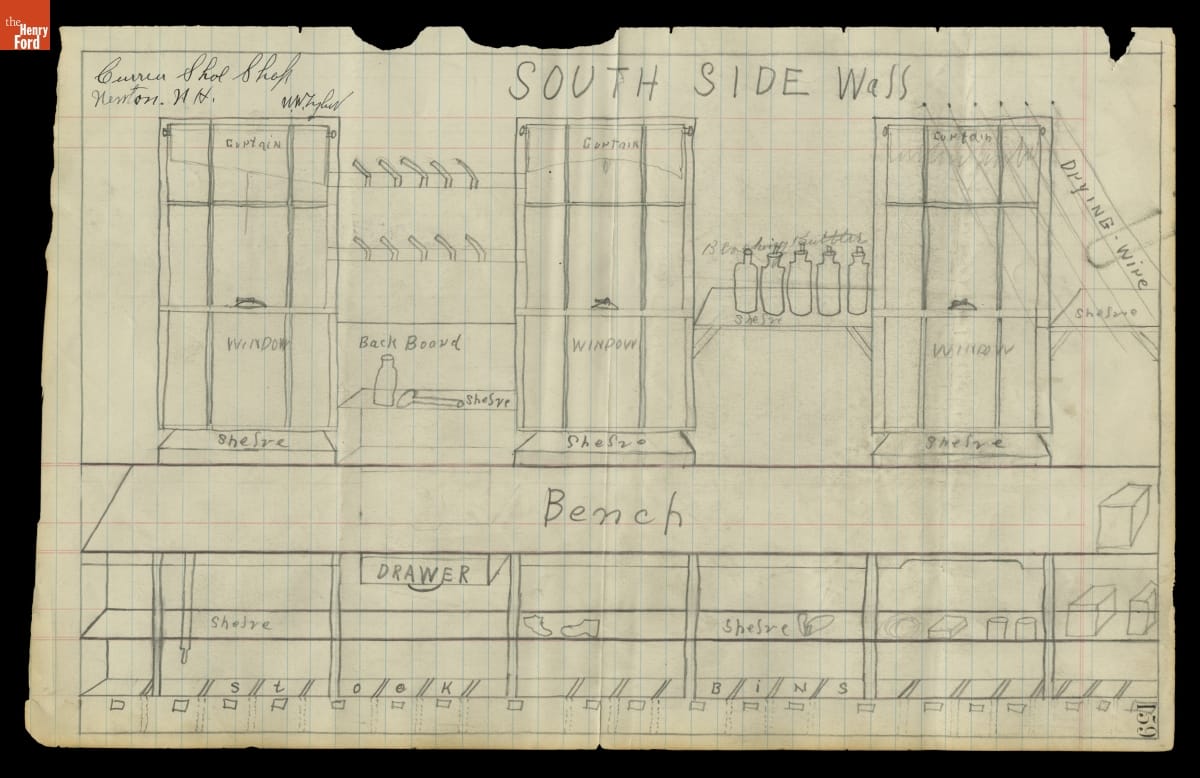 the
Henry
Ford
Shoe Shop
Newton. N H.
SOUTH SIDE Wall
Curtain
Curtain
Curtain
DRYING - Wire
Shelve
Shelve
WINDOW
Back Board
WINDOW
WINDOW
Shelve
Shelve
Shelve
Shelve
Bench
DRAWER
Shelve
Shelve
St ock
BiNS
159